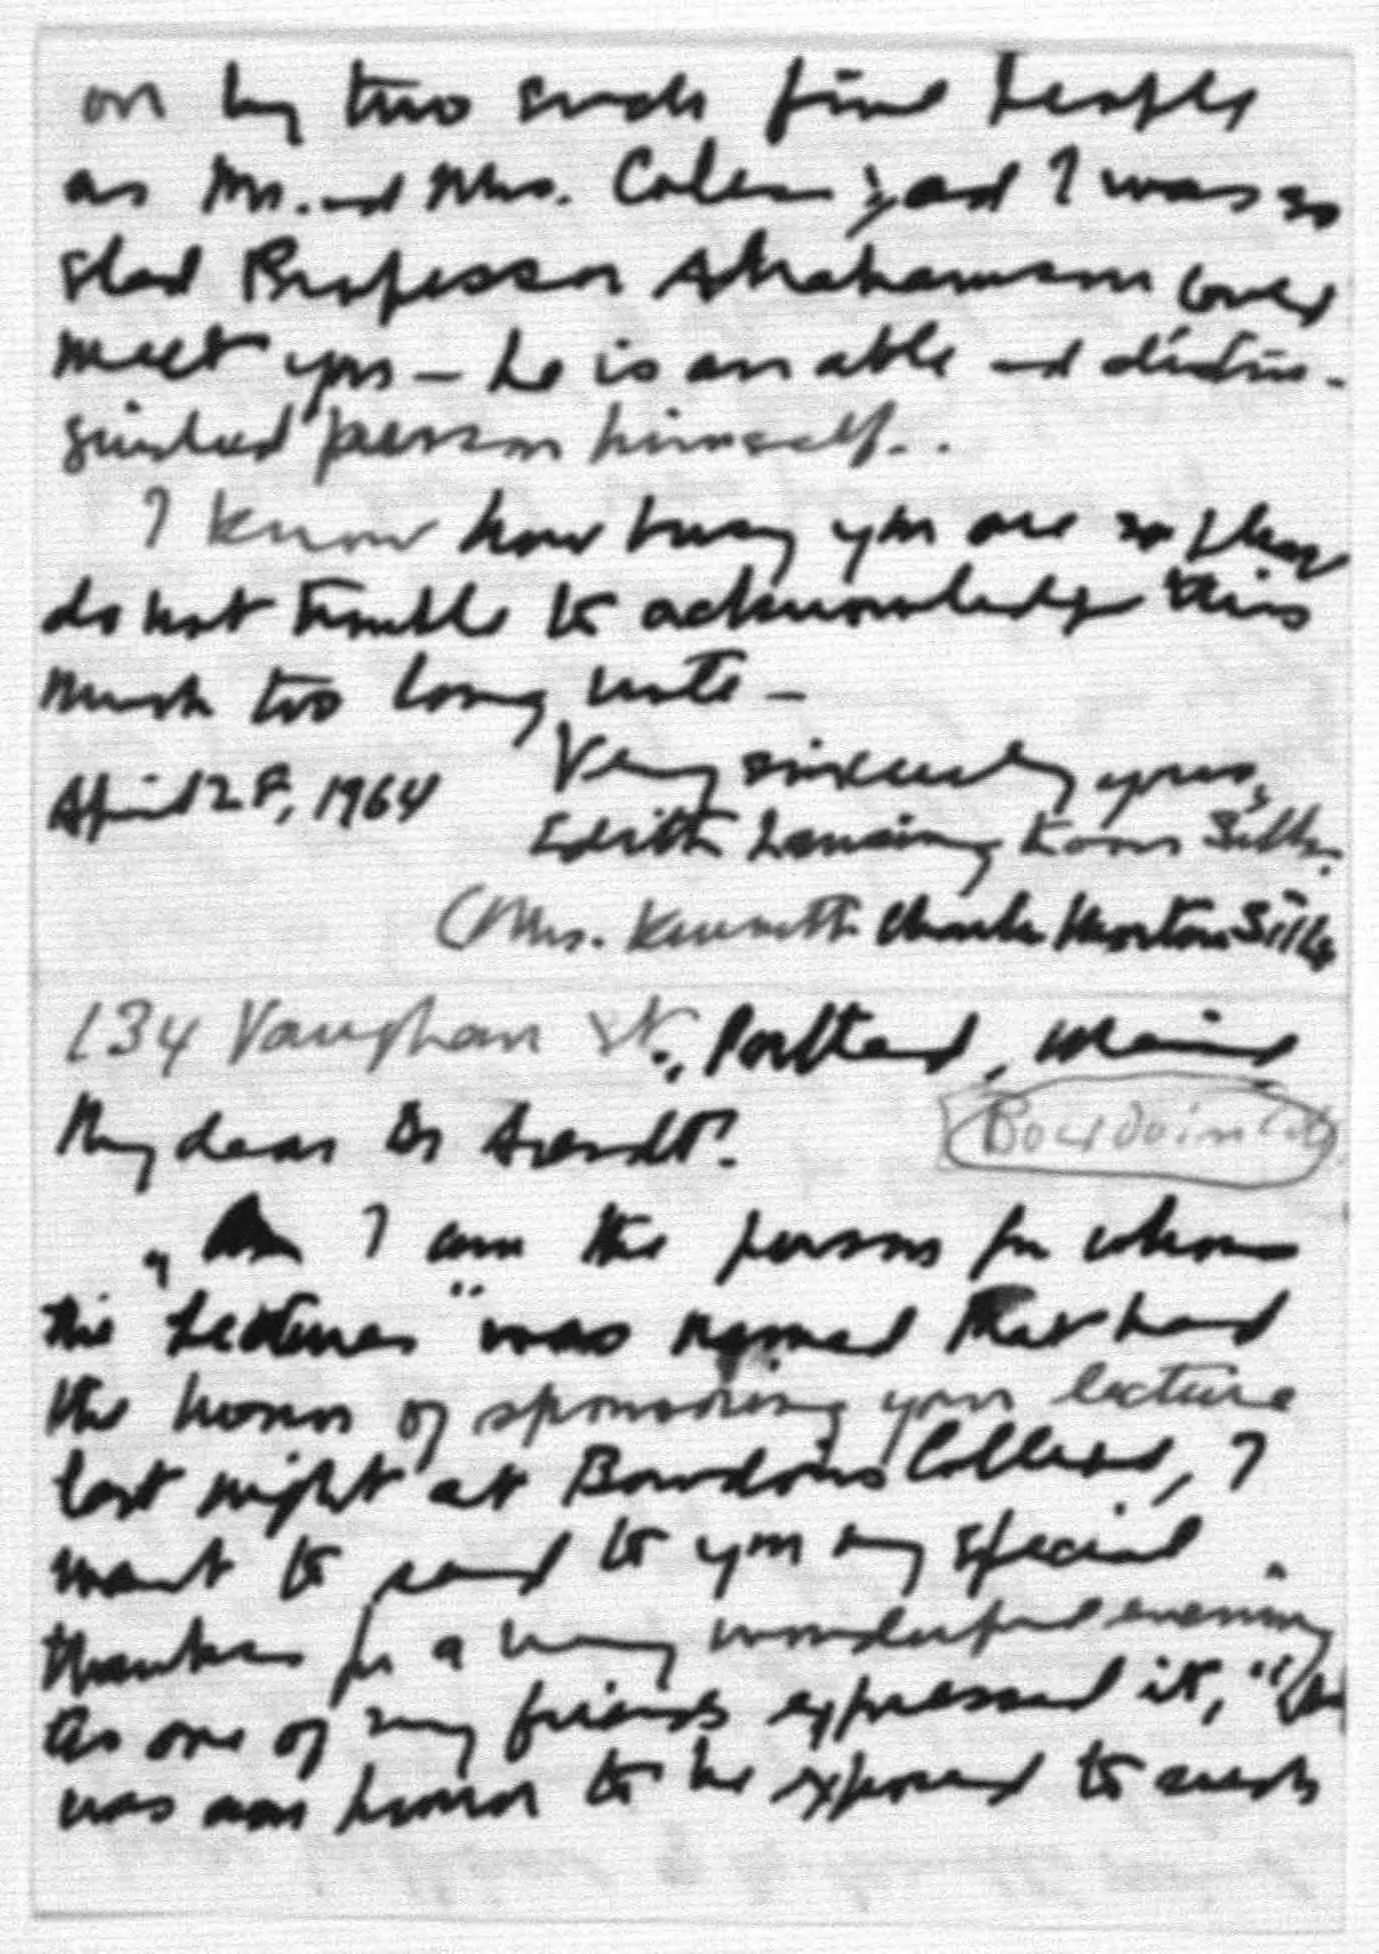 on by two such fine people
as Mr. and Mrs. Coles ; and I was so
glad Professor Abrahamson could
meet you — he is an able and distin-
guished person himself..
I know how busy you are so please
do not trouble to acknowledge this
much too long note —
Very sincerely yours,
April 28, 1964
Edith Lansing Koon Sills.
(Mrs. Kenneth Charles Morton Sills
134 Vaughan St., Portland, Maine
My dear Dr Arendt:
Bowdoin Col
As I am the person for whom
the "Lectures" was named that had
the honor of sponsoring your lecture
last night at Bowdoin College, I
want to send to you my special
thanks for a very wonderful evening.
As one of my friends expressed it, "
was an honor to be exposed to such